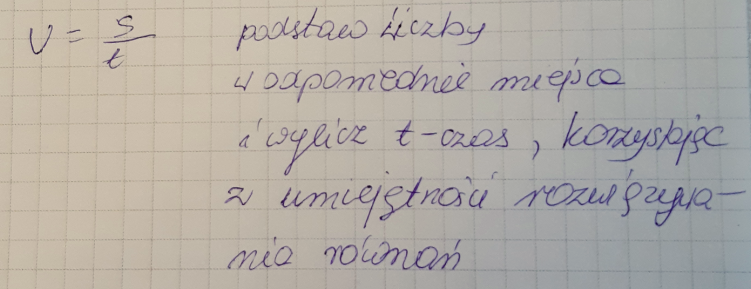 V = s/t podstaw liczby
w odpowiednie miejsca
i wylicz t-czas, korzystając
z umiejętności rozwiązywa-
nia równań